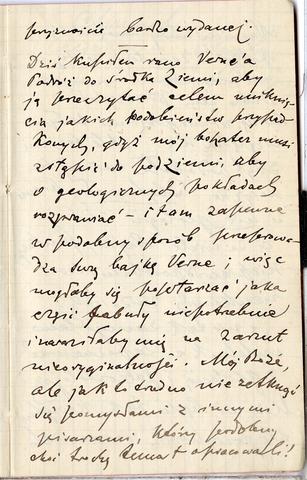 przyzwoicie bardzo wydanej.
Dziś kupiłem rano Verne'a
Podróż do środka Ziemi, aby
ją przeczytać celem uniknię-
cia jakich podobieństw przypad-
kowych, gdyż mój bohater musi
zstąpić do podziemi, aby
o geologicznych pokładach
rozprawiać – i tam zapewne
w podobny sposób przeprowa-
dza swą bajkę Verne; więc
mogłaby się powtarzać jaka
część fabuły niepotrzebnie
i naraziłaby mię na zarzut
nieoryginalności. Mój Boże,
ale jak to trudno nie zetknąć
się pomysłami z innymi
pisarzami, którzy podobny
choć trochę temat opracowali!